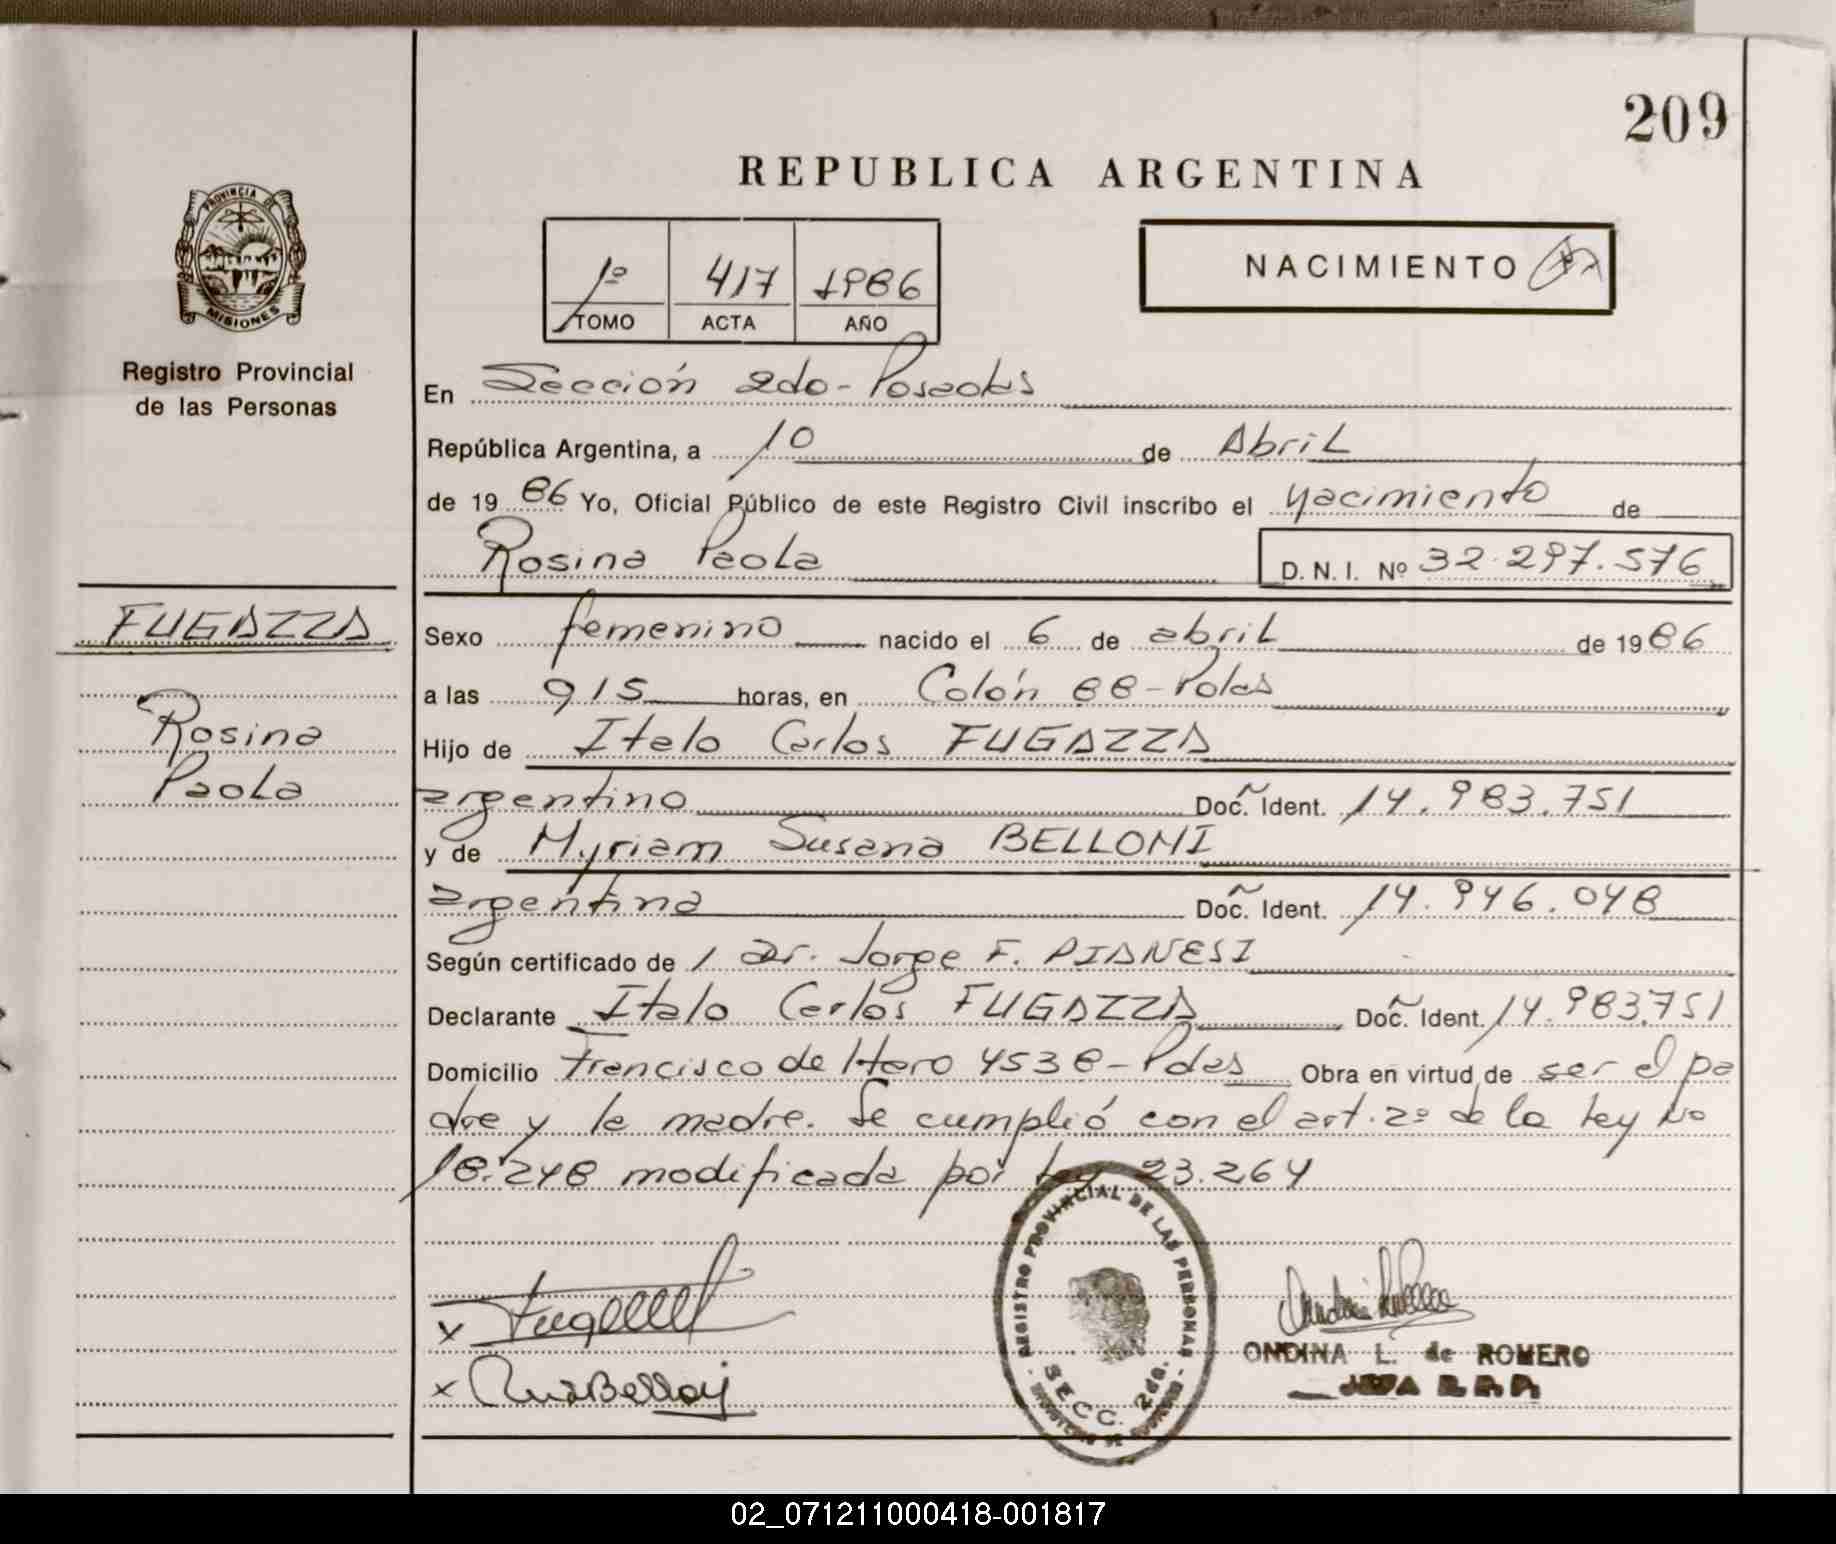 209
REPUBLICA ARGENTINA
PROVINCIA DE
MISIONES
Registro Provincial
de las Personas
1º 417 1986
TOMO ACTA AÑO
NACIMIENTO
En Sección 2da - Posadas
República Argentina, a 10 de Abril
de 19 86 Yo, Oficial Público de este Registro Civil inscribo el nacimiento de
Rosina Paola D. N. I. Nº 32.297.576
FUGAZZA
Rosina
Paola
Sexo femenino nacido el 6 de abril de 1986
a las 915 horas, en Colón 88 - Pdas
Hijo de Italo Carlos FUGAZZA
argentino Doc. Ident. 14.983.751
y de Myriam Susana BELLONI
argentina Doc. Ident. 14.946.048
Según certificado de / Dr. Jorge F. PIANESI
Declarante Italo Carlos FUGAZZA Doc. Ident. 14.983.751
Domicilio Francisco de Haro 4538 - Pdas Obra en virtud de ser el pa
dre y la madre. Se cumplió con el art. 2º de la ley No
18.248 modificada por ley 23.264
REGISTRO PROVINCIAL DE LAS PERSONAS
SECC. 2da.
ONDINA L. de ROMERO
JEFA R.P.P.
02_071211000418-001817